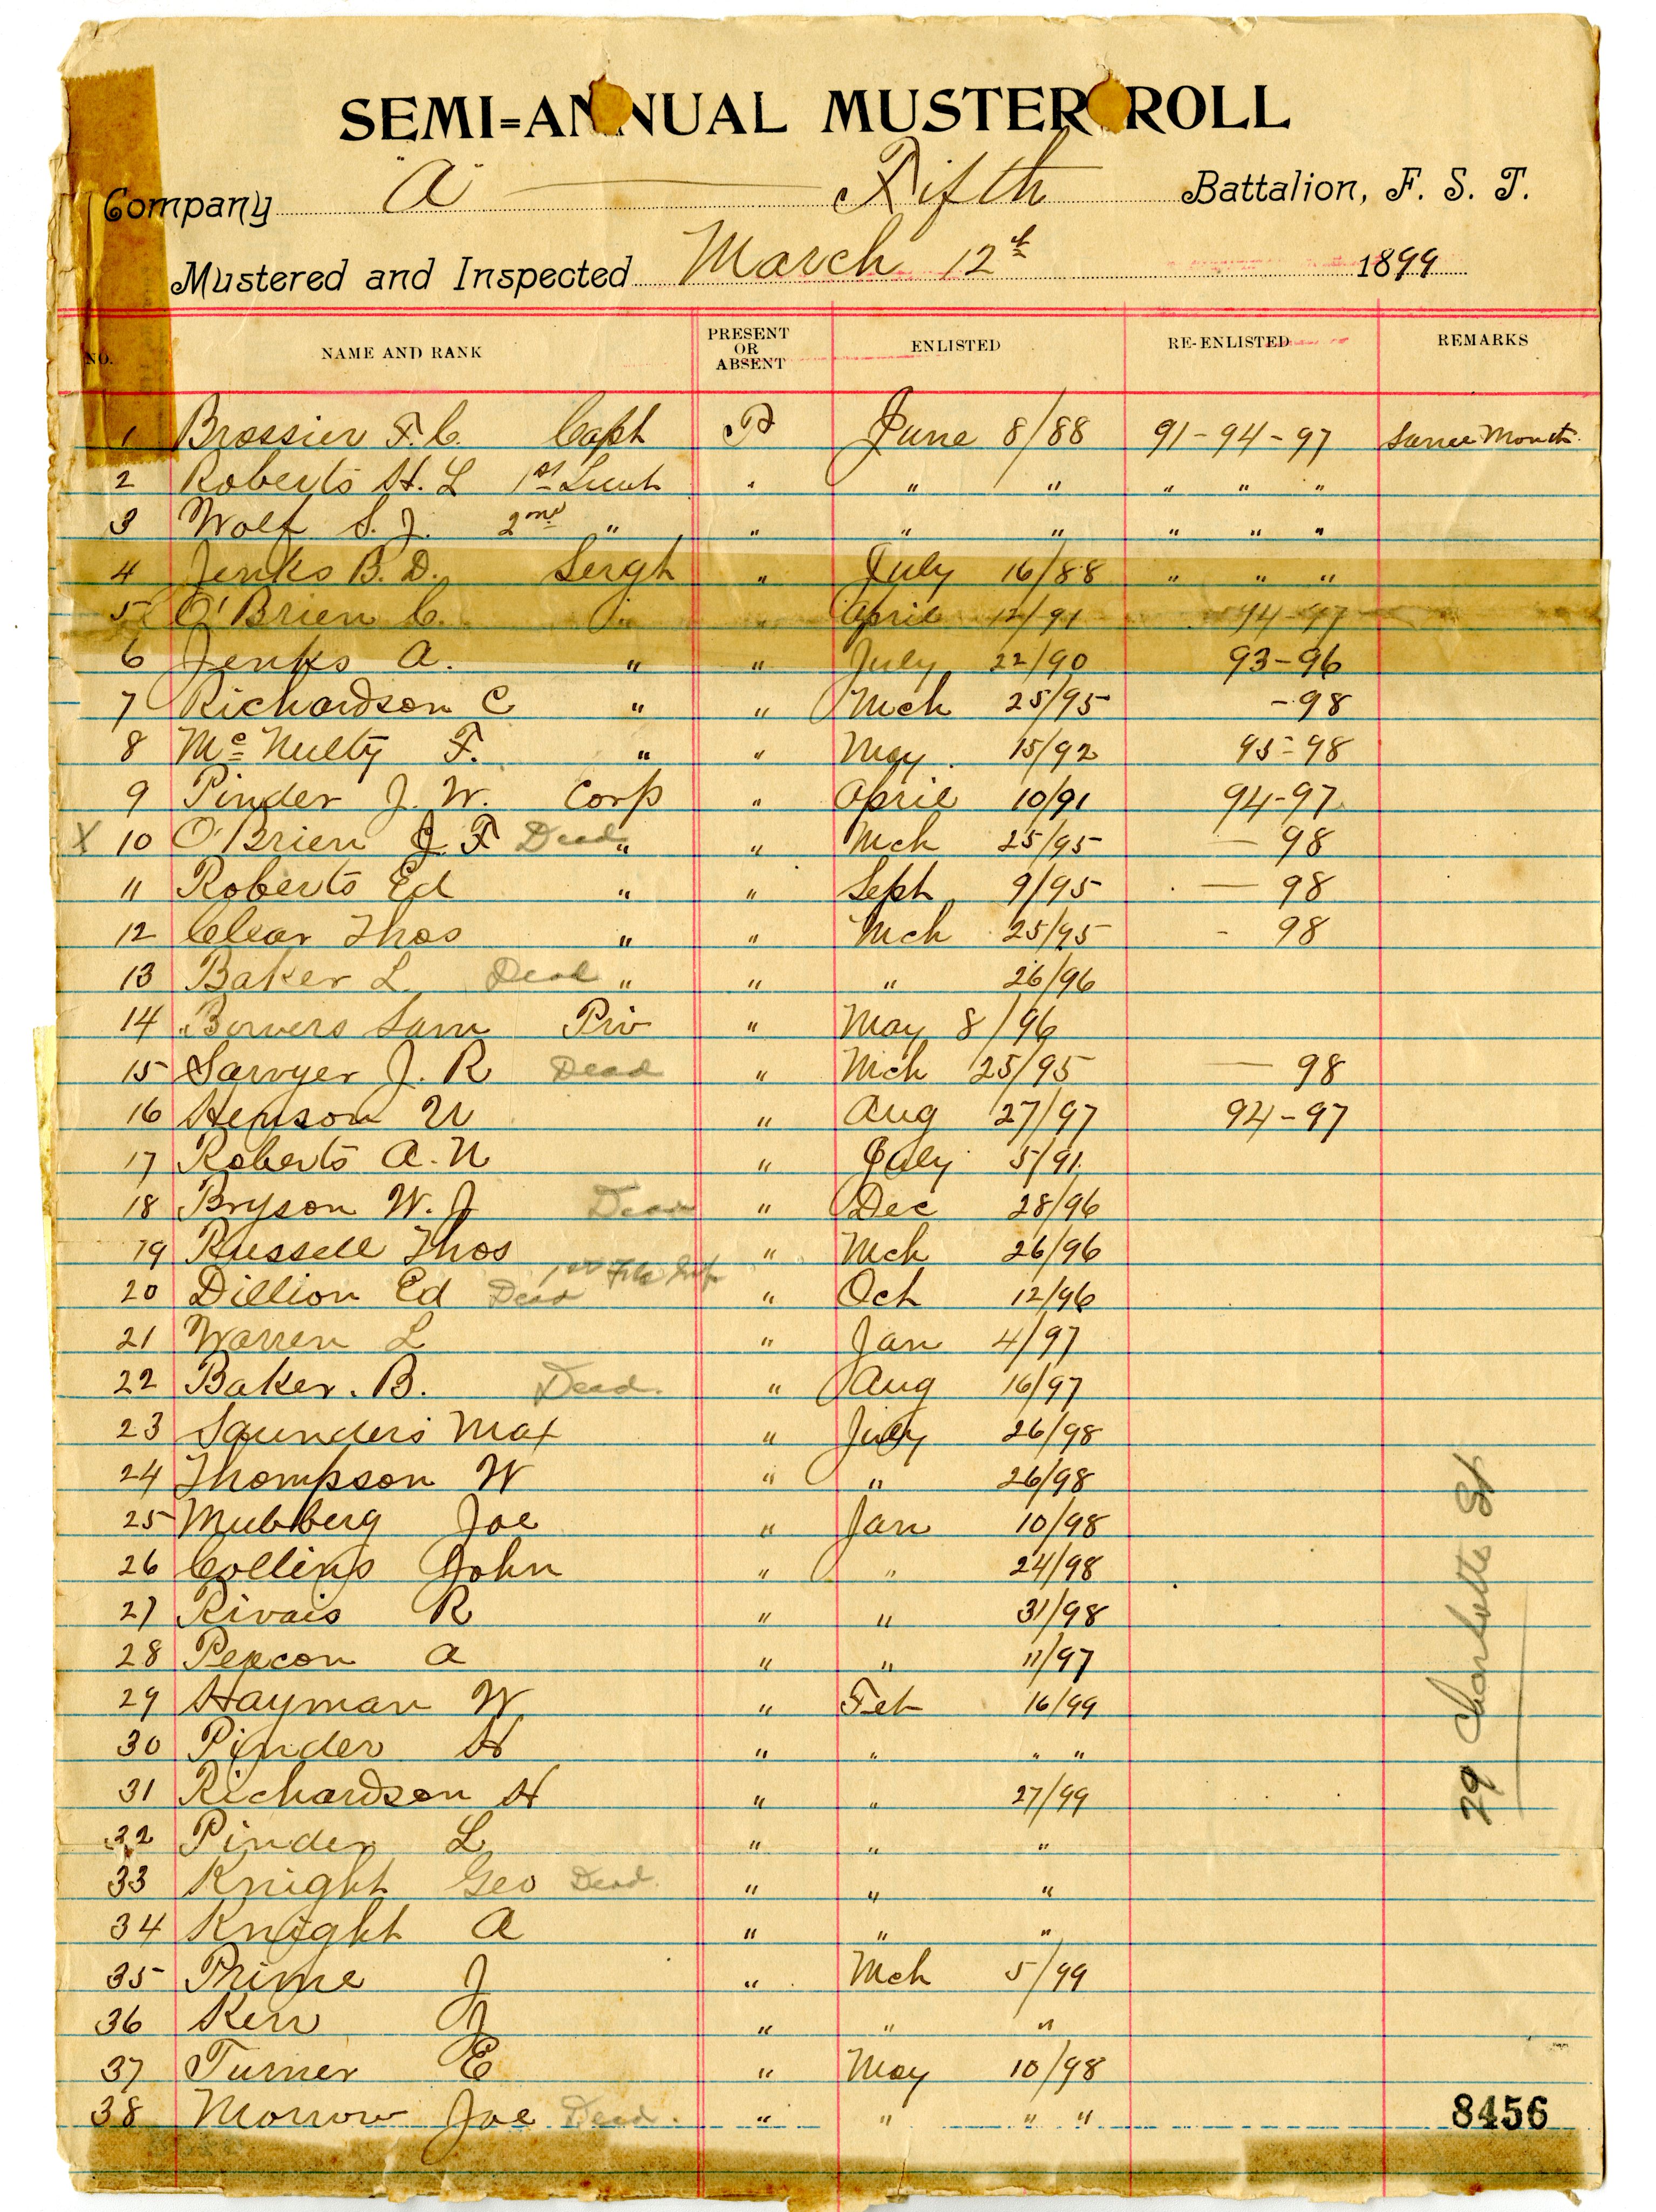 SEMI=ANNUAL MUSTER ROLL
Company "A" — Fifth Battalion, F. S. T.
Mustered and Inspected March 12th 1899
NO. NAME AND RANK PRESENT OR ABSENT ENLISTED RE-ENLISTED REMARKS
1 Brossier F. C. Capt P June 8/88 91-94-97 Same Month
2 Roberts H. L 1st Lieut " " " " " "
3 Wolf S. J. 2nd " " " " " " "
4 Jenks B. D. Sergt " July 16/88 " " "
5 O'Brien C. " " April 12/91 94-97
6 Jenks A. " " July 22/90 93-96
7 Richardson C " " Mch 25/95 -98
8 McNulty F. " " May 15/92 95-98
9 Pinder J. W. Corp " April 10/91 94-97
X 10 O'Brien J. F Dead " " Mch 25/95 — 98
11 Roberts Ed " " Sept 9/95 — 98
12 Clear Thos " " Mch 25/95 - 98
13 Baker L. Dead " " " 26/96
14 Bowers Sam Priv " May 8/96
15 Sawyer J. R Dead " Mch 25/95 — 98
16 Henson W " Aug 27/97 94-97
17 Roberts A. W " July 5/91
18 Bryson W. J Dead " Dec 28/96
19 Russell Thos " Mch 26/96
20 Dillion Ed Dead " Oct 12/96
21 Warren L " Jan 4/97
22 Baker. B. Dead. " Aug 16/97
23 Saunders Max " July 26/98
24 Thompson W " " 26/98
25 Mubberg Joe " Jan 10/98
26 Collins John " " 24/98
27 Rivais R " " 31/98
28 Pexcon A " " 11/97
29 Hayman W " Feb 16/99
30 Pinder H " " " "
31 Richardson H " " 27/99
32 Pinder L " " "
33 Knight Geo Dead. " " "
34 Knight A " " "
35 Prime J " Mch 5/99
36 Kerr J " " "
37 Turner E " May 10/98
38 Morrow Joe Dead. " " " "
29 Charlotte St
8456